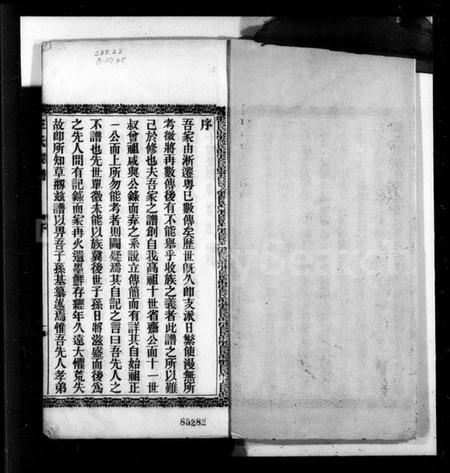 288.22
序
吾家由浙遷粵已數傳矣歷世既久即支派日繁使漫無所
考徵將再數傳後有不能舉乎收族之義者此譜之所以難
已於修也夫吾家之譜創自我高祖十世省齋公而十一世
叔曾祖咸與公錄而弆之系說立傳簡而有詳其自始祖正
一公而上所勿能考者則闕疑焉其自記之言曰吾先人之
不譜也先世單微未能以族冀後世子孫日將滋盛而後為
之先人間有記錄而家再火遺墨鮮存經年久遠大懼荒失
故即所知草剏茲譜以畀吾子孫基纂述焉惟吾先人孝弟
85282